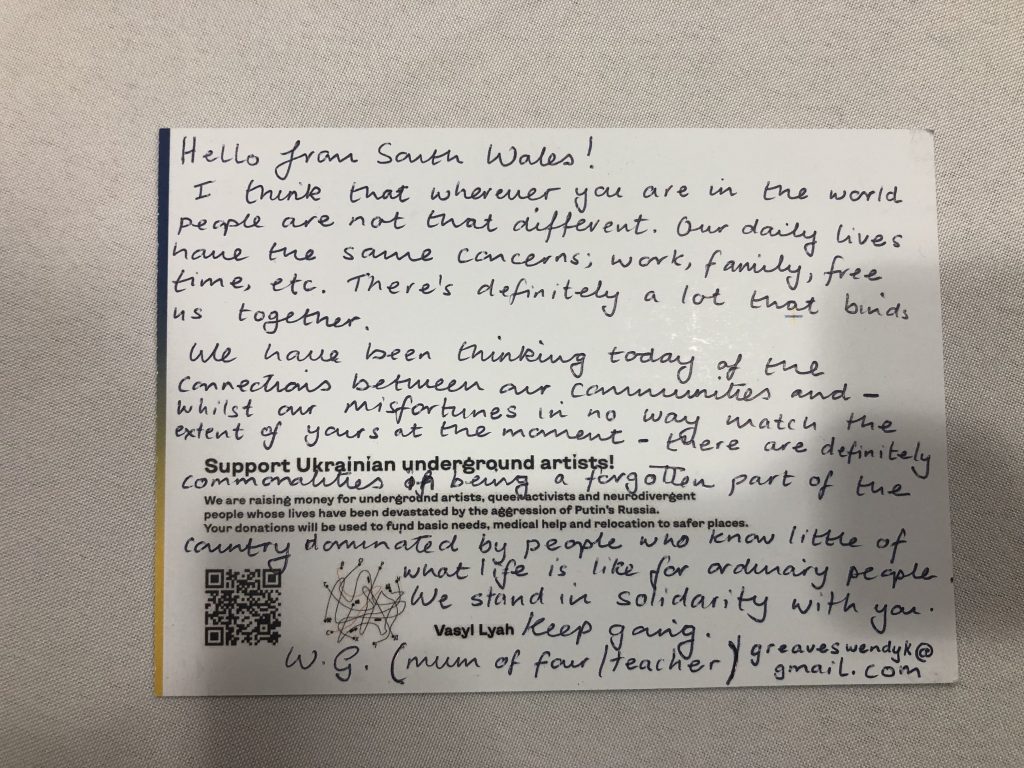 Hello from South Wales!
I think that wherever you are in the world
people are not that different. Our daily lives
have the same concerns; work, family, free
time, etc. There's definitely a lot that binds
us together.
We have been thinking today of the
connections between our communities and –
whilst our misfortunes in no way match the
extent of yours at the moment – there are definitely
Support Ukrainian underground artists!
commonalities in being a forgotten part of the
We are raising money for underground artists, queer activists and neurodivergent
people whose lives have been devastated by the aggression of Putin's Russia.
Your donations will be used to fund basic needs, medical help and relocation to safer places.
country dominated by people who know little of
what life is like for ordinary people.
We stand in solidarity with you.
Vasyl Lyah Keep going.
W.G. (mum of four/teacher) greaveswendyk@
gmail.com